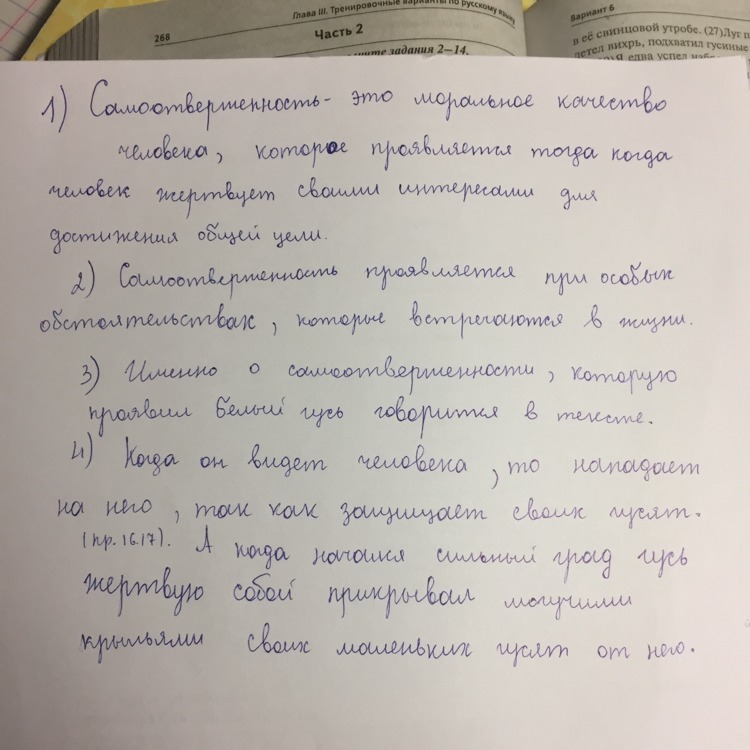 Глава III. Тренировочные варианты по русскому языку
268
Часть 2
задания 2—14.
Вариант 6
в её свинцовой утробе. (27)Луг
вихрь, подхватил гусиные
едва успел
1) Самоотверженность - это моральное качество
человека, которое проявляется тогда когда
человек жертвует своими интересами для
достижения общей цели.
2) Самоотверженность проявляется при особых
обстоятельствах, которые встречаются в жизни.
3) Именно о самоотверженности, которую
проявил Белый гусь говорится в тексте.
4) Когда он видет человека, то нападает
на него, так как защищает своих гусят.
(пр.16.17). А когда начался сильный град гусь
жертвую собой прикрывал могучими
крыльями своих маленьких гусят от него.